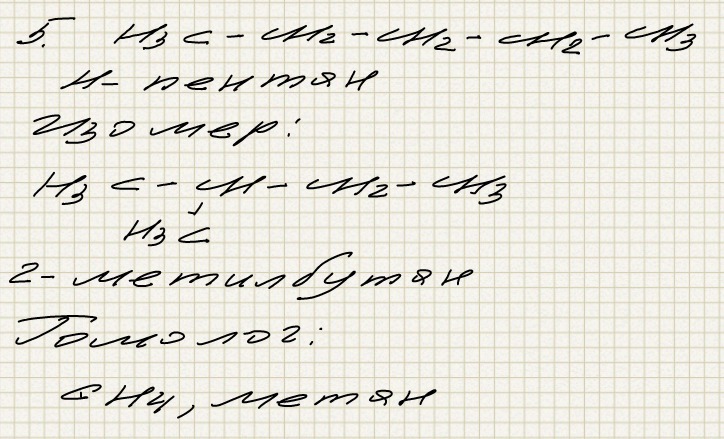 5. H₃C-CH₂-CH₂-CH₂-CH₃
н-пентан
Изомер:
H₃C-CH-CH₂-CH₃
H₃C
2-метилбутан
Гомолог:
CH₄, метан